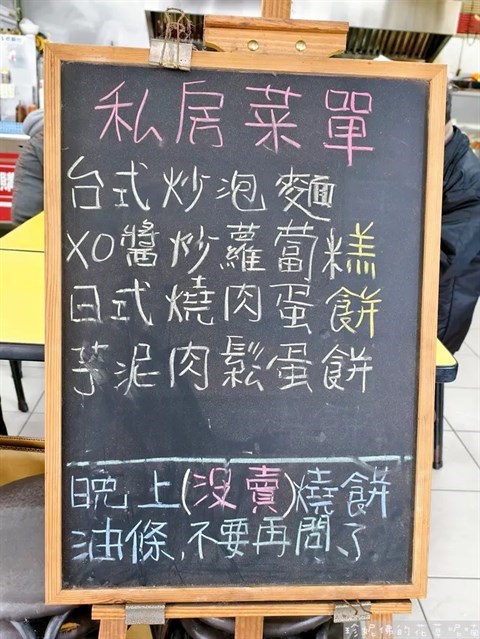 私房菜單
台式炒泡麵
XO醬炒蘿蔔糕
日式燒肉蛋餅
芋泥肉鬆蛋餅
晚上(沒賣)燒餅
油條,不要再問了